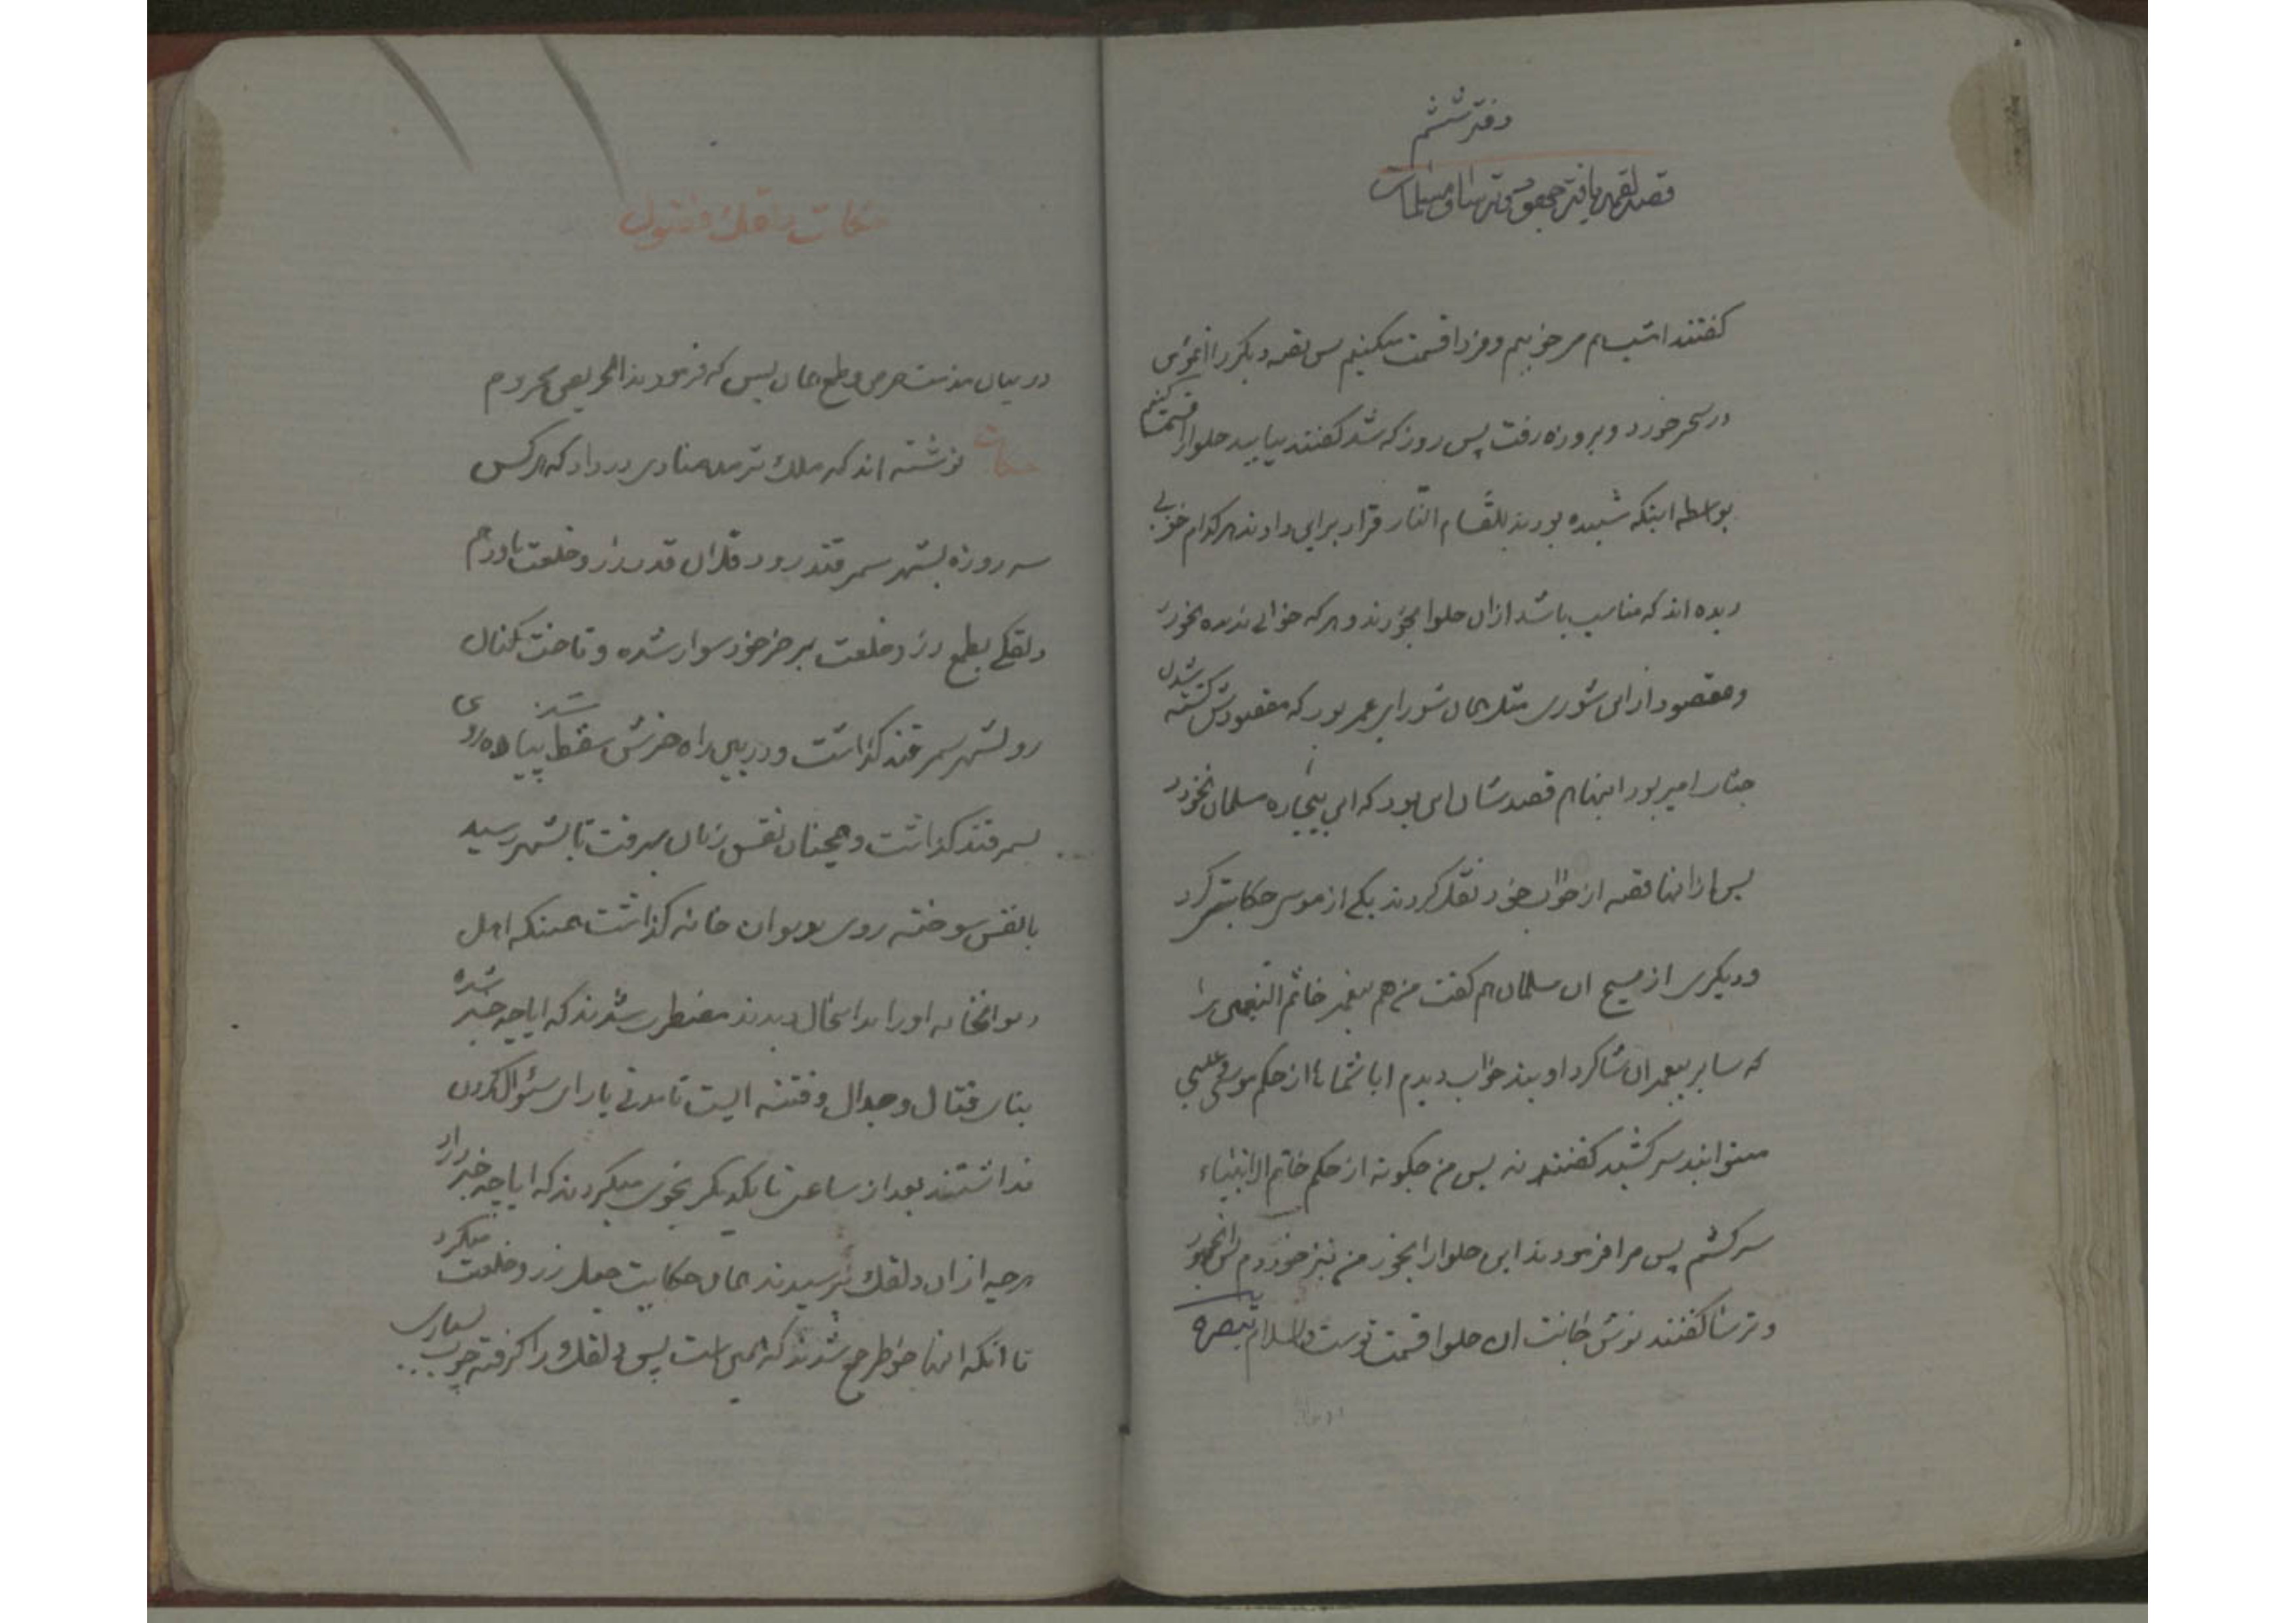 دفتر ششم
قصه لقمه یافتن جهود و ترسا و مسلمان
گفتند امشب هم میخوریم و فردا قسمت میکنیم پس لقمه دیگر را
در سحر خورد و بروزه رفت پس روز که شد گفتند بیایید حلوا را قسمت کنیم
بواسطه اینکه شنیده بودند القسام فی النار قرار براین دادند هر کدام خوابی
دیده اند که مناسب باشد ازان حلوا بخورند و هر که خوابی ندیده نخورد
و مقصود از این شوری مثل همان شورای عمر بود که مقصودش کشته شدن
جناب امیر بود اینها هم قصدشان این بود که این بیچاره مسلمان نخورد
پس از اینها قصه از خواب خود نقل کردند یکی از موسی حکایت کرد
و دیگری از مسیح ان مسلمان هم گفت من هم پیغمبر خاتم النبیین را
که سایر پیغمبران شاگرد اویند خواب دیدم ایا شماها از حکم موسی و عیسی
میتوانید سر کشید گفتند نه پس من چگونه از حکم خاتم الانبیاء
سر کشم پس مرا فرمودند این حلوا را بخور من نیز خوردم پس ان جهود
و ترسا گفتند نوش جانت ان حلوا قسمت توست والسلام تبصره
حکایت دلقک و
در بیان مذمت حرص و طمع همان بس که فرمودند الحریص محروم
حکایت نوشته اند که ملک ترمد منادی در داد که هر کس
سه روزه بشهر سمرقند رود فلان قدر زر و خلعت باو دهم
دلقکی بطمع زر و خلعت بر خر خود سوار شده و تاخت کنان
رو بشهر سمرقند گذاشت و در بین راه خرش سقط شد پیاده روی
بسمرقند گذاشت و همچنان نفس زنان میرفت تا بشهر رسید
با نفس سوخته روی بدیوان خانه گذاشت همینکه اهل
دیوانخانه او را بدانحال دیدند مضطرب شدند که ایا چه خبر شده
بنای قتال و جدال و فتنه ایست تا مدتی یارای سئوال کردن
نداشتند بعد از ساعتی تا یکدیگر نجوی میکردند که ایا چه خبر دارد
هر چه از ان دلقک پرسیدند همان حکایت جعل زر و خلعت میکرد
تا انکه اینها خواطر جمع شدند که همین است پس دلقک را گرفته چوب بسیاری